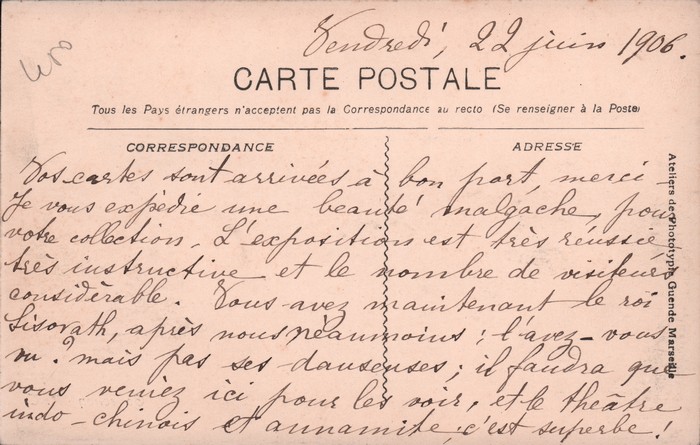 Vendredi, 22 juin 1906.
CARTE POSTALE
Tous les Pays étrangers n'acceptent pas la Correspondance au recto (Se renseigner à la Poste)
CORRESPONDANCE
ADRESSE
Vos cartes sont arrivées à bon port, merci -
Je vous expédie une beauté malgache, pour
votre collection. L'exposition est très réussie
très instructive et le nombre de visiteurs
considérable. Vous avez maintenant le roi
Sisovath, après nous néanmoins ; l'avez-vous
vu ? mais pas ses danseuses ; il faudra que
vous veniez ici pour les voir, et le théâtre
indo-chinois et annamite, c'est superbe !
Ateliers de Phototypie Guende Marseille